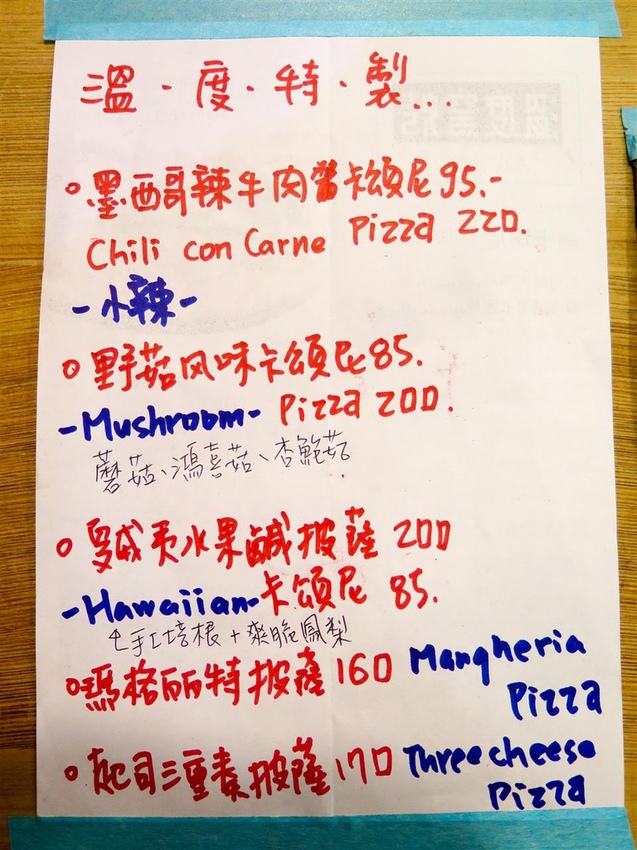 溫．度．特．製...
墨西哥辣牛肉醬卡頌尼 95.-
Chili con Carne Pizza 220.
-小辣-
野菇风味卡頌尼 85.
-Mushroom- Pizza 200.
蘑菇、鴻喜菇、杏鮑菇
夏威夷水果鹹披薩 200
-Hawaiian-卡頌尼 85.
手工培根+爽脆鳳梨
瑪格丽特披薩 160 Mangheria
Pizza
起司三重奏披薩 170 Three cheese
Pizza